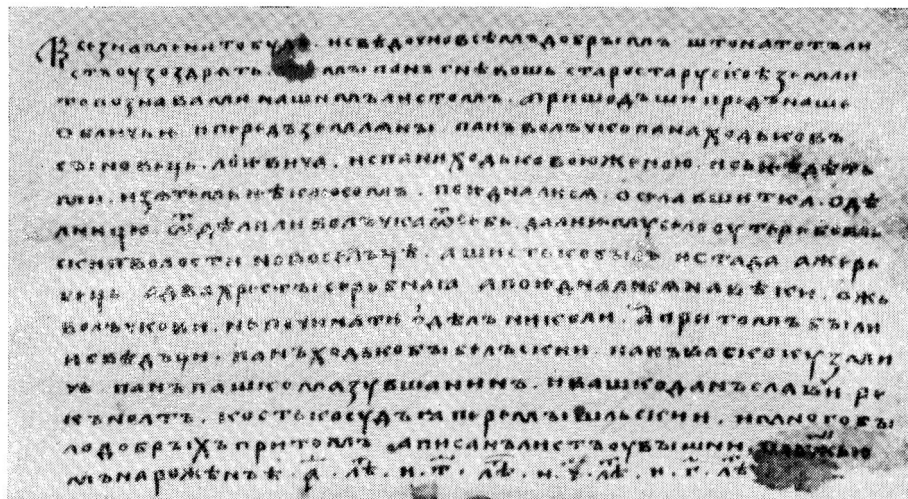 Всезнаменито буд и свѣдочно всемъ добрымъ што на тотъ ли
стъ оузоздрать мы панъ гнѣвошь староста рускоѣ земли
то познавами нашимъ листомъ аришодъши предъ наше
обличьи и передъ землѧны панъ волъчко пана ходьковъ
сыновець лоѥвича и с пани ходьковою женою и сь и дѣть
ми и зѧтемь поиднался о сла вшитка о дѣ
лницю ѿдѣлили волъчка ѿ себь дали ему село оу теребовль
скѣи волости новоселъцѣ а шисть кобылъ и стада а жере
вець а два хресты серебнаıа а поидналисѧ на вѣки ожь
волъчкови не починати о дѣлъ николи а при томъ были
и свѣдъци панъ ходько быбельскии панъ васко кузми
чь панъ пашко мазувшанинъ ивашко данъславичь ре
костько судьıа перемышльскии и много бы
ло добрыхъ при томъ а писанъ листъ оу вышни
мъ нарожѣнъѣ .҂а. лѣ. и .т. лѣ. и .ч. лѣ. и .г. лѣ